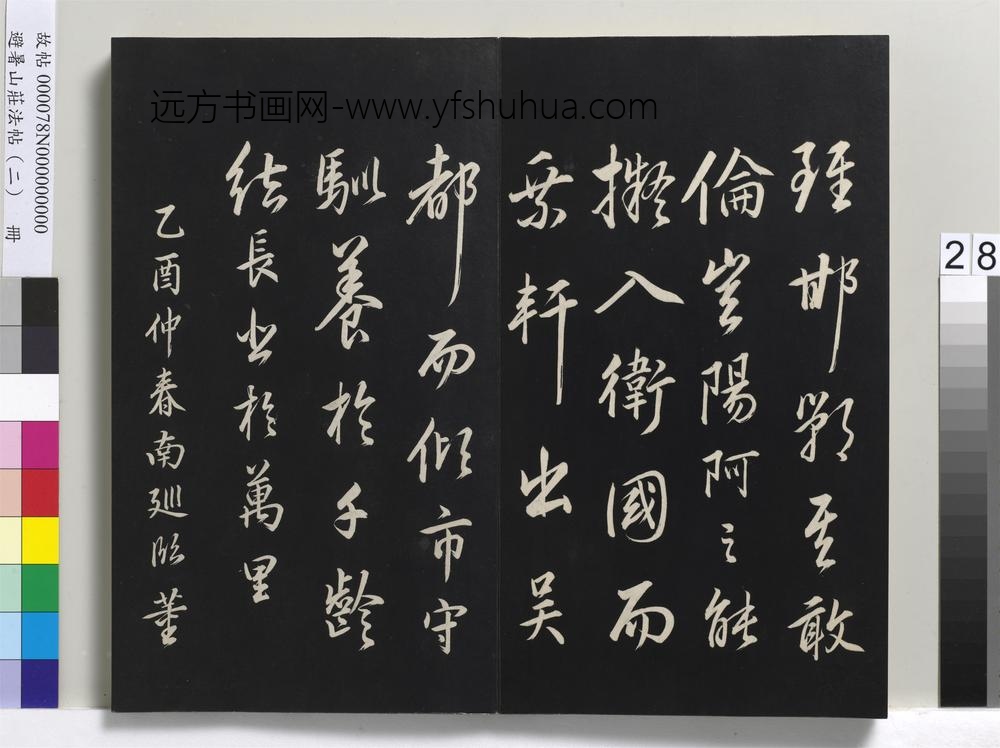 远方书画网-www.yfshuhua.com
雖邯鄲其敢
倫豈陽阿之能
擬入衛國而
乘軒出吳
都而傾市守
馴養於千齡
結長悲於萬里
乙酉仲春南廵臨董
故帖 000078N000000000
避暑山莊法帖(二) 冊
28